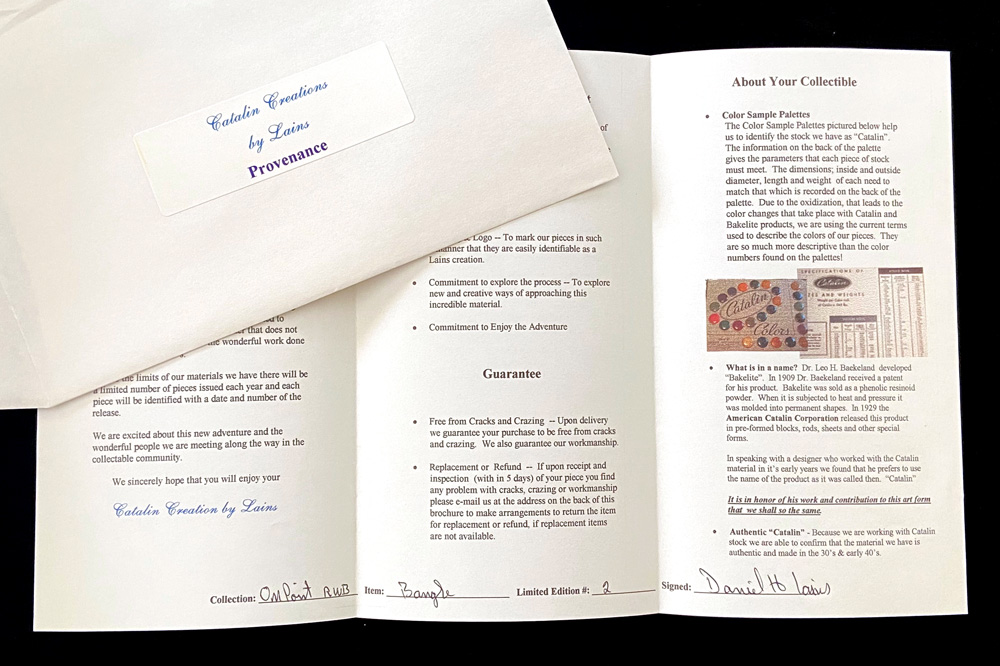 Catalin Creations
by Lains
Provenance
to
that does not
wonderful work done
the limits of our materials we have there will be
a limited number of pieces issued each year and each
piece will be identified with a date and number of the
release.
We are excited about this new adventure and the
wonderful people we are meeting along the way in the
collectable community.
We sincerely hope that you will enjoy your
Catalin Creation by Lains
Collection: OnPoint RWB
of
Logo -- To mark our pieces in such
manner that they are easily identifiable as a
Lains creation.
• Commitment to explore the process -- To explore
new and creative ways of approaching this
incredible material.
• Commitment to Enjoy the Adventure
Guarantee
• Free from Cracks and Crazing -- Upon delivery
we guarantee your purchase to be free from cracks
and crazing. We also guarantee our workmanship.
• Replacement or Refund -- If upon receipt and
inspection (with in 5 days) of your piece you find
any problem with cracks, crazing or workmanship
please e-mail us at the address on the back of this
brochure to make arrangements to return the item
for replacement or refund, if replacement items
are not available.
Item: Bangle Limited Edition #: 2
About Your Collectible
• Color Sample Palettes
The Color Sample Palettes pictured below help
us to identify the stock we have as "Catalin".
The information on the back of the palette
gives the parameters that each piece of stock
must meet. The dimensions; inside and outside
diameter, length and weight of each need to
match that which is recorded on the back of the
palette. Due to the oxidization, that leads to the
color changes that take place with Catalin and
Bakelite products, we are using the current terms
used to describe the colors of our pieces. They
are so much more descriptive than the color
numbers found on the palettes!
Catalin
Colors
SPECIFICATIONS OF
Catalin
AND WEIGHTS
• What is in a name? Dr. Leo H. Baekeland developed
"Bakelite". In 1909 Dr. Baekeland received a patent
for his product. Bakelite was sold as a phenolic resinoid
powder. When it is subjected to heat and pressure it
was molded into permanent shapes. In 1929 the
American Catalin Corporation released this product
in pre-formed blocks, rods, sheets and other special
forms.
In speaking with a designer who worked with the Catalin
material in it's early years we found that he prefers to use
the name of the product as it was called then. "Catalin"
It is in honor of his work and contribution to this art form
that we shall so the same.
• Authentic "Catalin" - Because we are working with Catalin
stock we are able to confirm that the material we have is
authentic and made in the 30's & early 40's.
Signed: Daniel H Lains